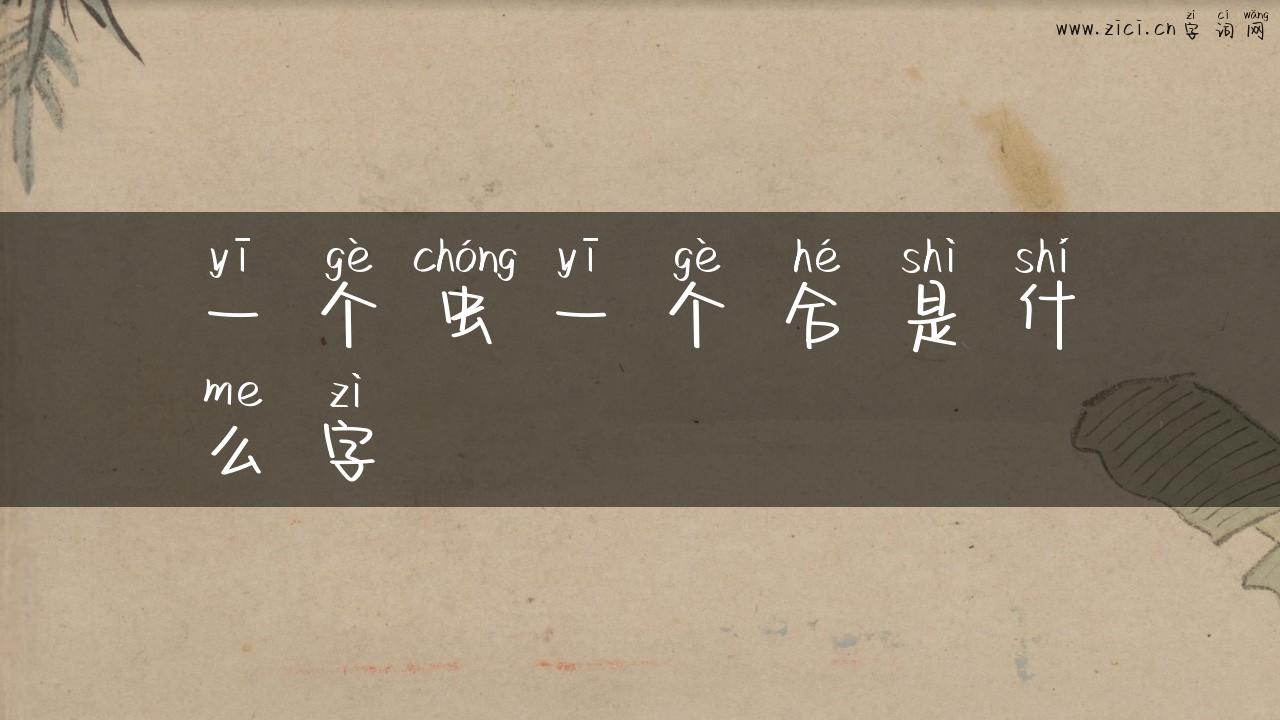 www.zici.cn zì cí wǎng
字词网
yī gè chóng yī gè hé shì shí
一个虫一个合是什
me zì
么字